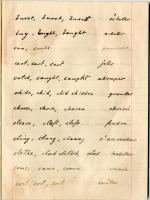 burst, burst, burst éclater
buy, bought, bought acheter
can, could pouvoir
cast, cast, cast jeter
catch, caught, caught attraper
chide, chid, chidden gronder
choose, chose, chosen choisir
cleave, cleft, cleft fendre
cling, clung, clung s'accrocher
clothe, clad clothed, clad habiller
come, came, come venir
cost, cost, cost coûter